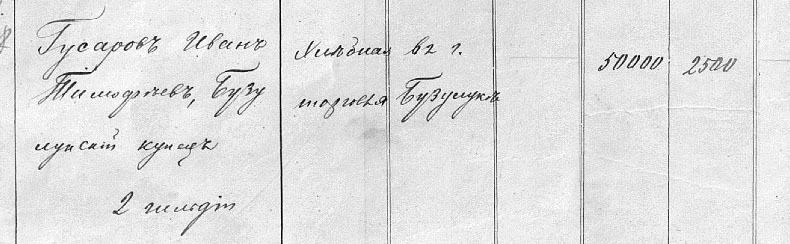 Гусаровъ Иванъ
Тимофѣевъ, Бузу
лукскій купецъ
2 гильдіи
Хлѣбная
торговля
въ г.
Бузулукѣ
50000
2500